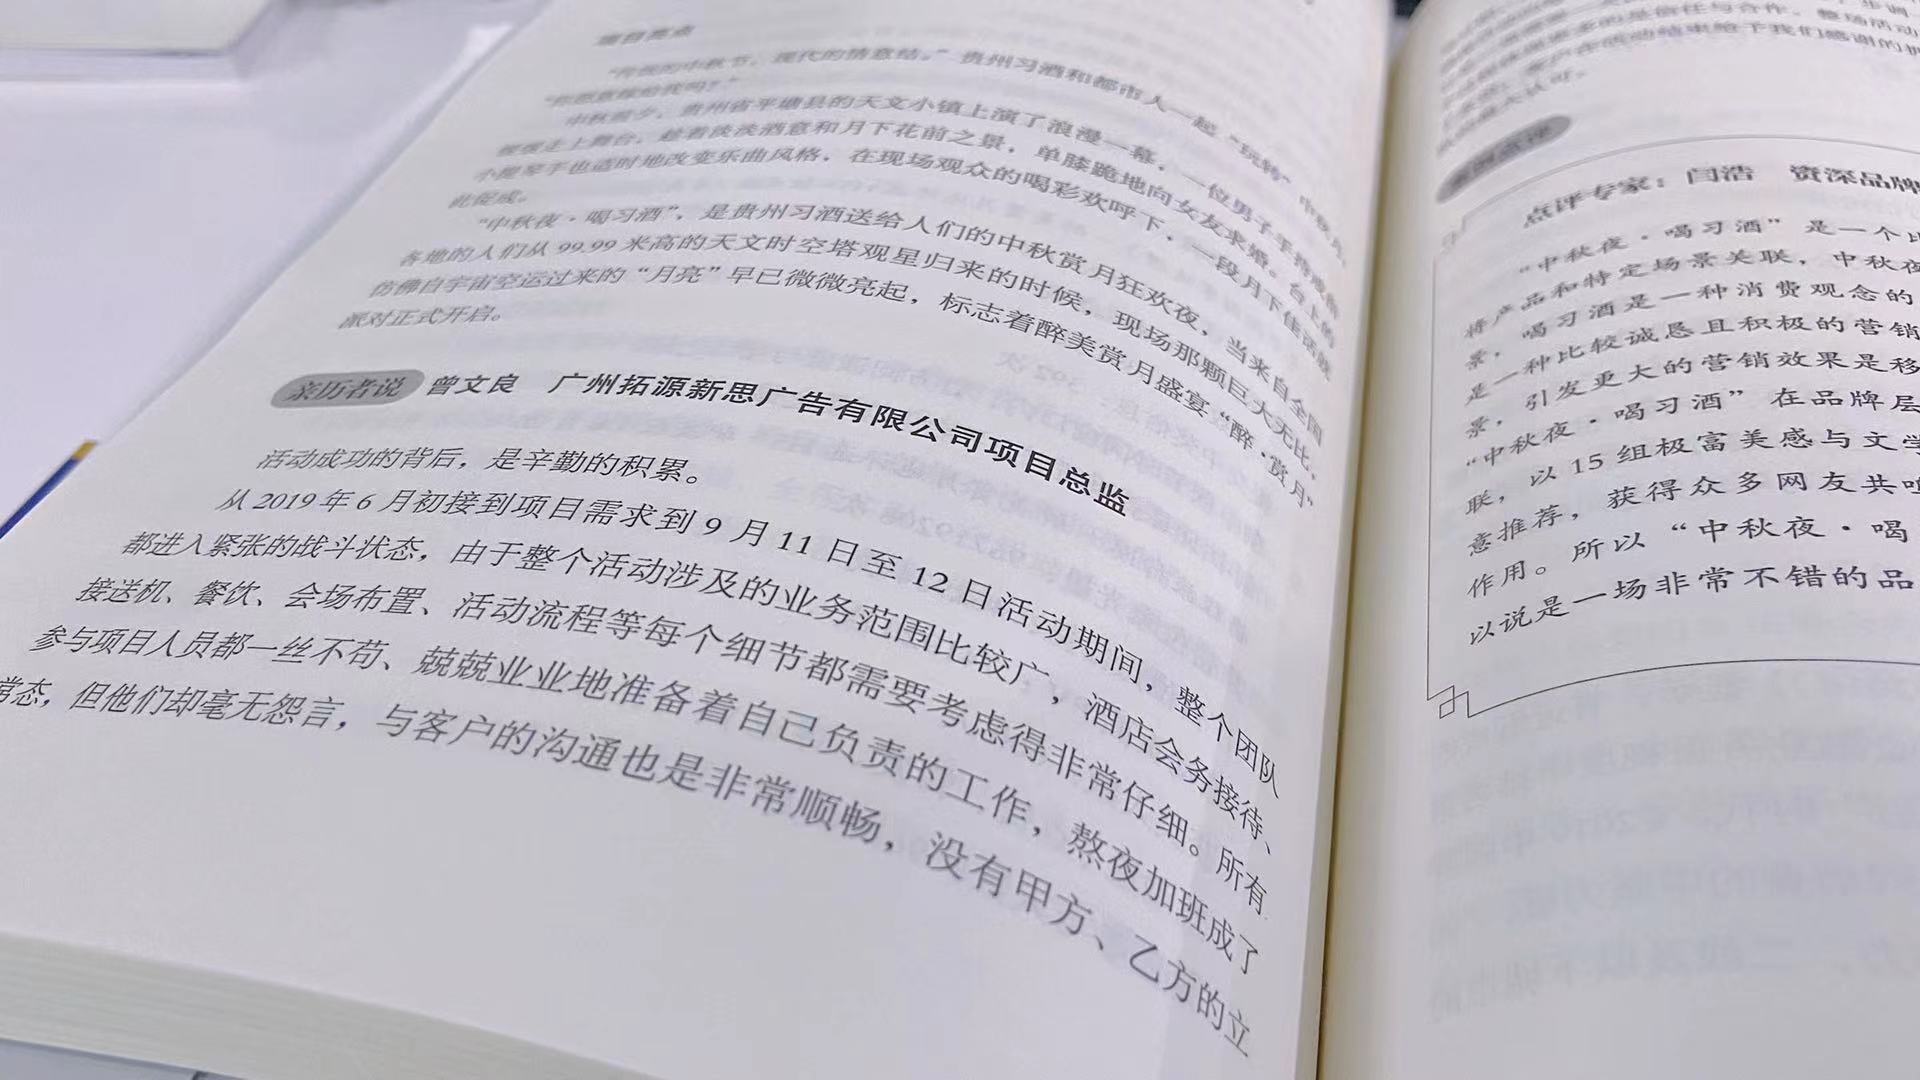 项目亮点
“传统的中秋节，现代的情意结。”贵州习酒和都市人一起“玩转”中秋月。
“你愿意嫁给我吗？”
中秋前夕，贵州省平塘县的天文小镇上演了浪漫一幕，一位男子手持
走上舞台，趁着淡淡酒意和月下花前之景，单膝跪地向女友求婚。台上的
小提琴手也适时地改变乐曲风格，在现场观众的喝彩欢呼下，一段月下佳话就
此促成。
“中秋夜·喝习酒”，是贵州习酒送给人们的中秋赏月狂欢夜，当来自全国
各地的人们从99.99米高的天文时空塔观星归来的时候，现场那颗巨大无比，
仿佛自宇宙空运过来的“月亮”早已微微亮起，标志着醉美赏月盛宴“醉·赏月”
派对正式开启。
亲历者说 曾文良 广州拓源新思广告有限公司项目总监
活动成功的背后，是辛勤的积累。
从2019年6月初接到项目需求到9月11日至12日活动期间，整个团队
都进入紧张的战斗状态，由于整个活动涉及的业务范围比较广，酒店会务接待、
接送机、餐饮、会场布置、活动流程等每个细节都需要考虑得非常仔细。所有
参与项目人员都一丝不苟、兢兢业业地准备着自己负责的工作，熬夜加班成了
常态，但他们却毫无怨言，与客户的沟通也是非常顺畅，没有甲方、乙方的立
的是信任与合作。整场活动
客户在活动结束给予我们感谢的
最大认可。
点评专家：闫浩 资深品牌
“中秋夜·喝习酒”是一个比
将产品和特定场景关联，中秋夜
景，喝习酒是一种消费观念的
是一种比较诚恳且积极的营销
景，引发更大的营销效果是移
“中秋夜·喝习酒”在品牌层
联，以15组极富美感与文学
意推荐，获得众多网友共鸣
作用。所以“中秋夜·喝
以说是一场非常不错的品